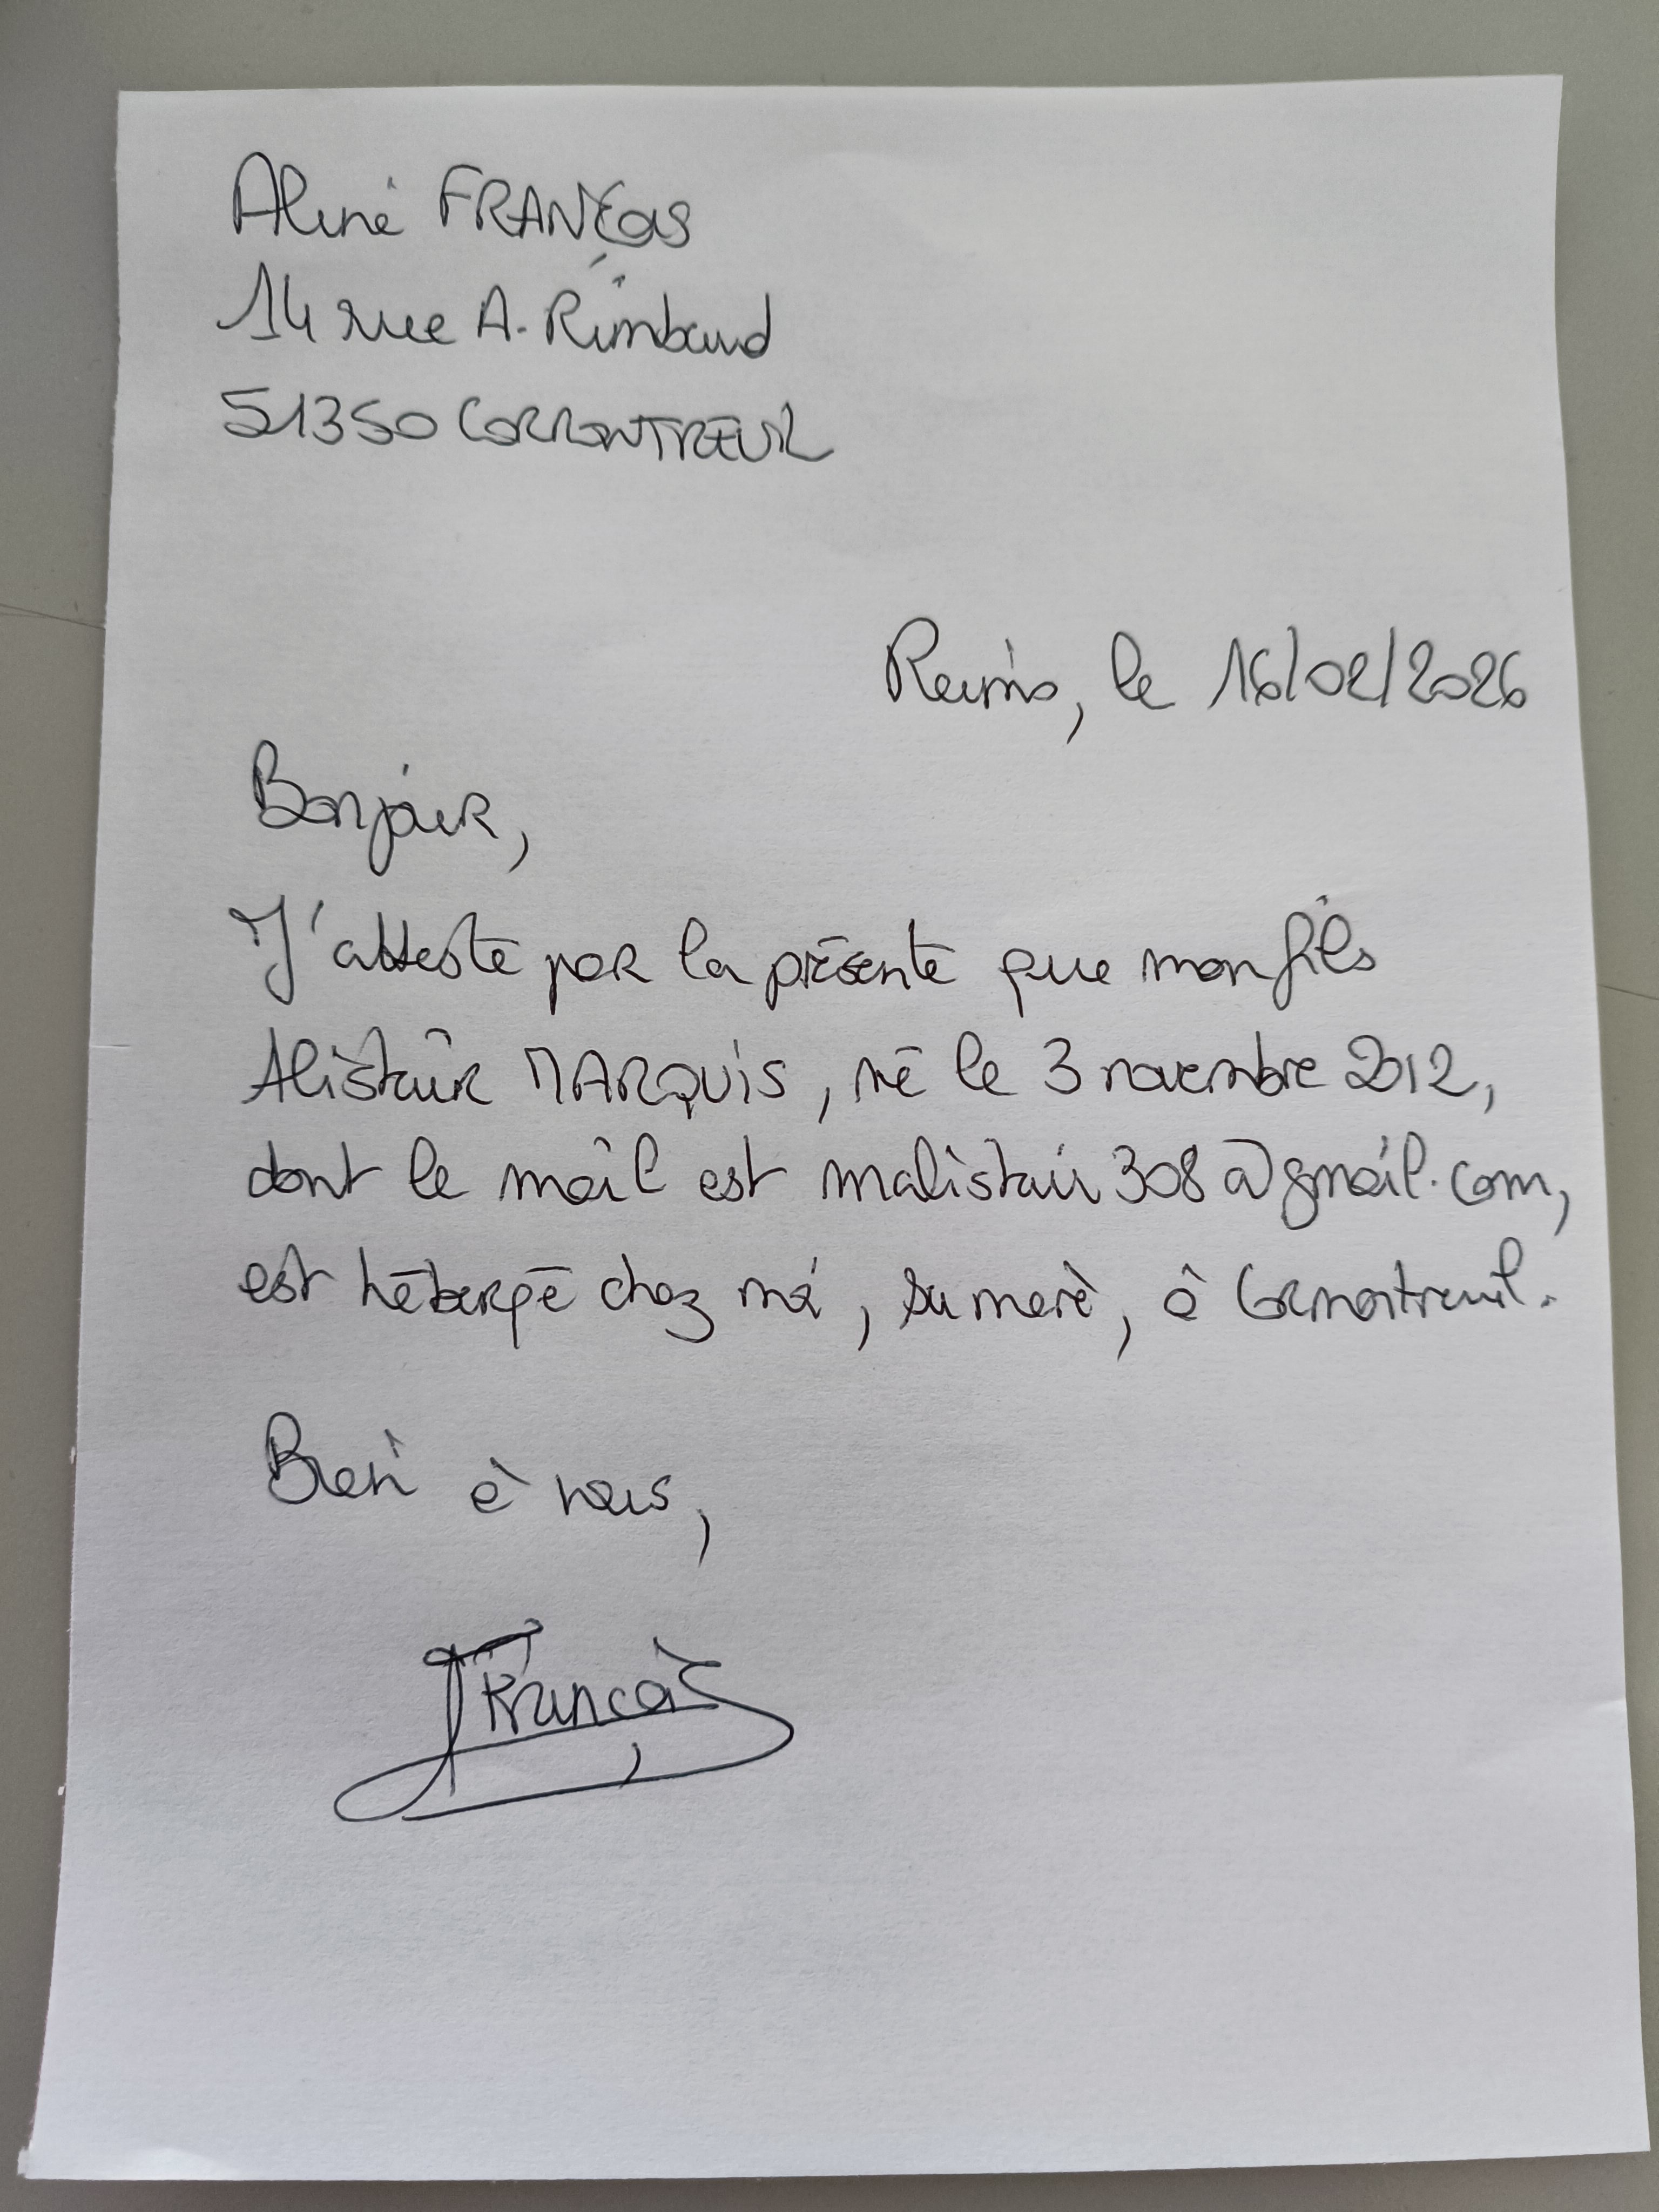 Aline FRANÇOIS
14 rue A. Rimbaud
51350 CORMONTREUIL
Reims, le 16/02/2026
Bonjour,
J'atteste par la présente que mon fils
Alistair MARQUIS, né le 3 novembre 2012,
dont le mail est malistair308@gmail.com,
est hébergé chez moi, sa mère, à Cormontreuil.
Bien à vous,
François